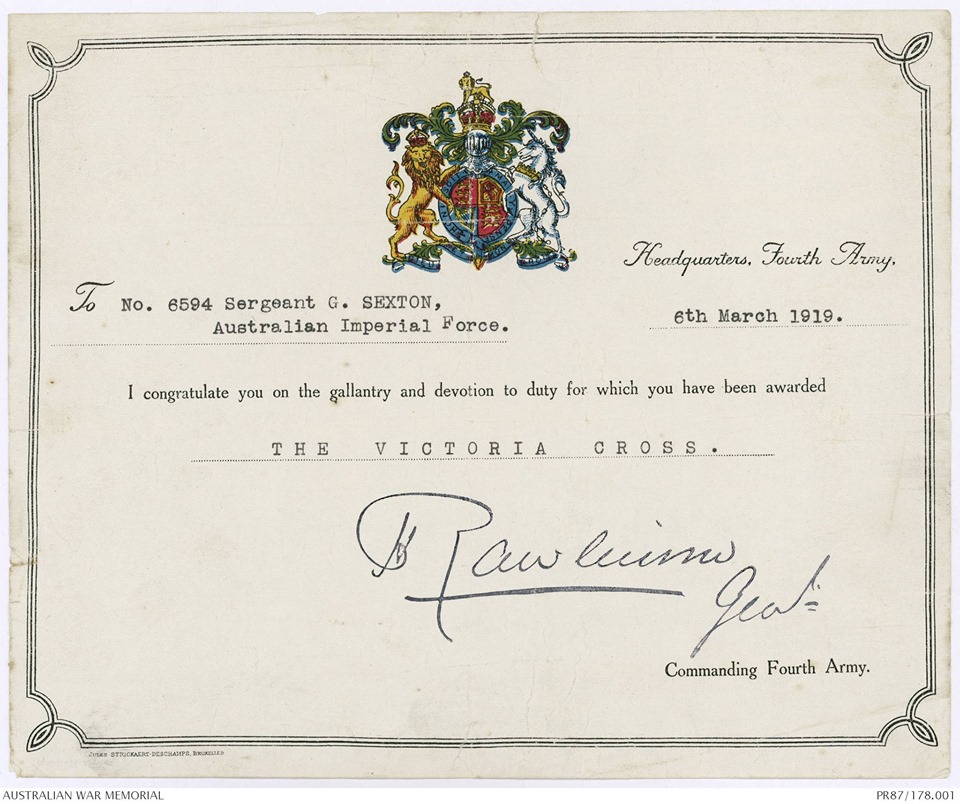 Headquarters, Fourth Army,
To No. 6594 Sergeant G. SEXTON,
Australian Imperial Force.
6th March 1919.
I congratulate you on the gallantry and devotion to duty for which you have been awarded
THE VICTORIA CROSS.
Rawlinson
Genl
Commanding Fourth Army.
JULES STRICKAERT-DESCHAMPS, BRUXELLES
AUSTRALIAN WAR MEMORIAL
PR87/178.001